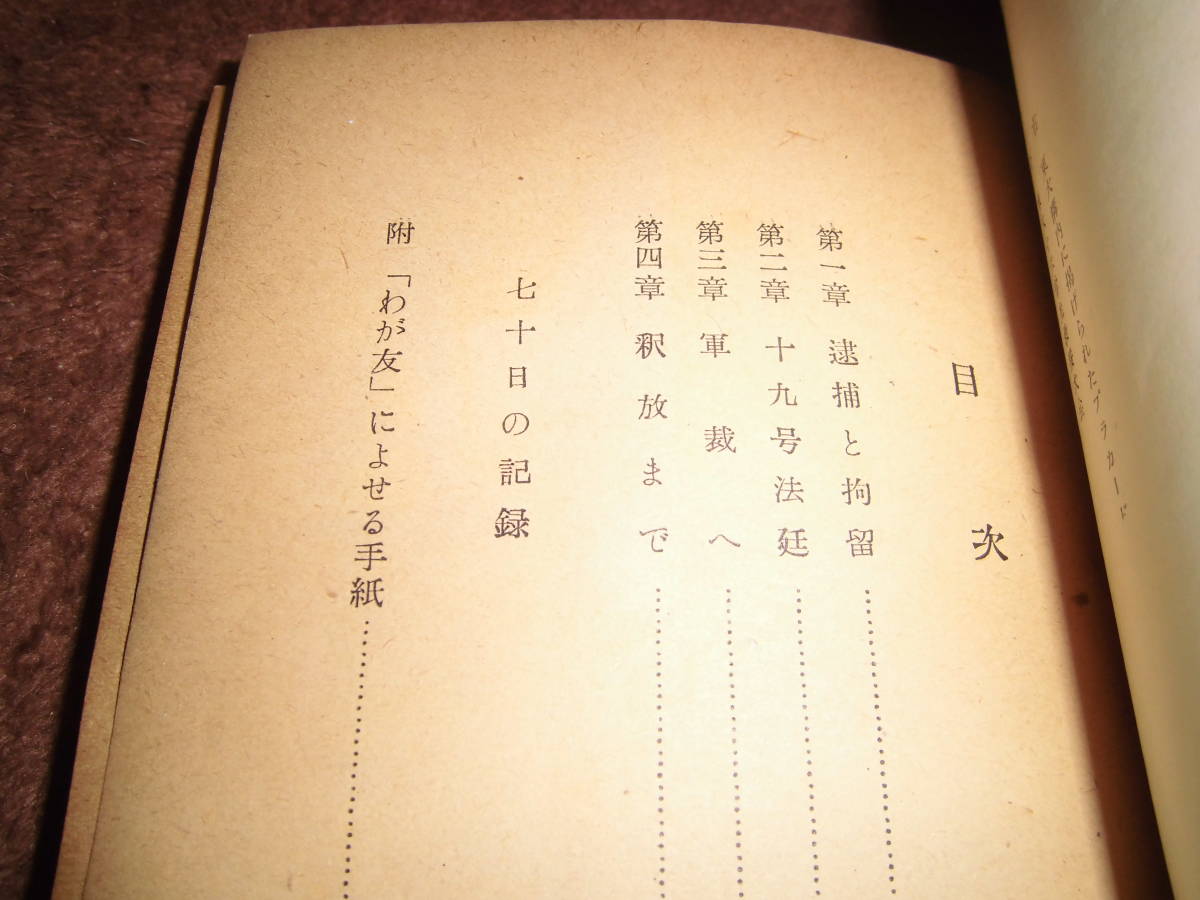 目次
第一章 逮捕と拘留
第二章 十九号法廷
第三章 軍裁へ
第四章 釈放まで
七十日の記録
附 「わが友」によせる手紙
内に掲げられたプラカード